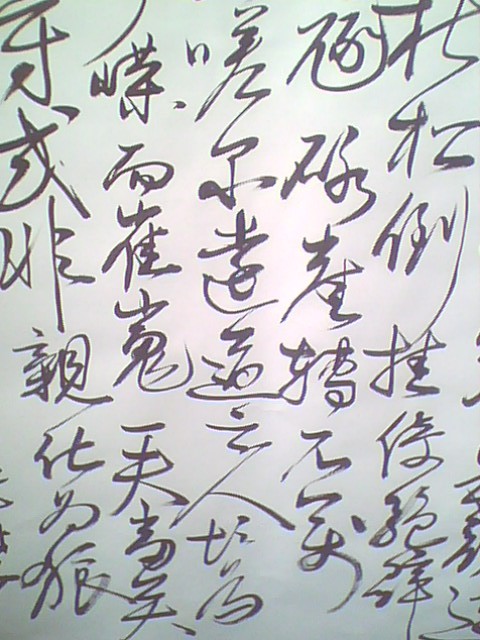 松倒挂倚絕壁
豗砯崖轉石万
嗟尔遠道之人胡为
嶸而崔嵬一夫當关
守或非親化为狼